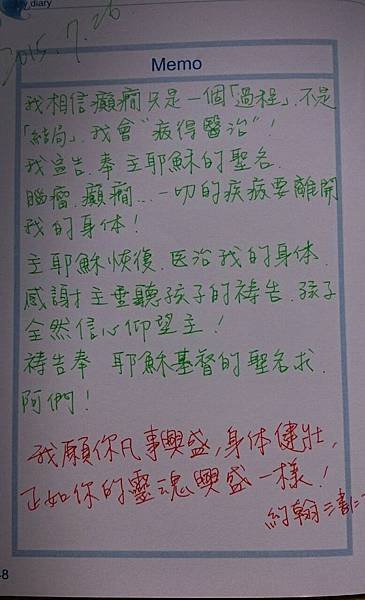 my diary
2015.7.26
Memo
我相信癲癇只是一個「過程」.不是
「結局」.我會"病得醫治"!
我宣告.奉主耶穌的聖名.
腦瘤.癲癇...一切的疾病要離開
我的身体!
主耶穌恢復.医治我的身体.
感謝主垂聽孩子的禱告.孩子
全然信心仰望主!
禱告奉 耶穌基督的聖名求.
阿們!
我願你凡事興盛,身体健壯,
正如你的靈魂興盛一樣!
約翰三書
48